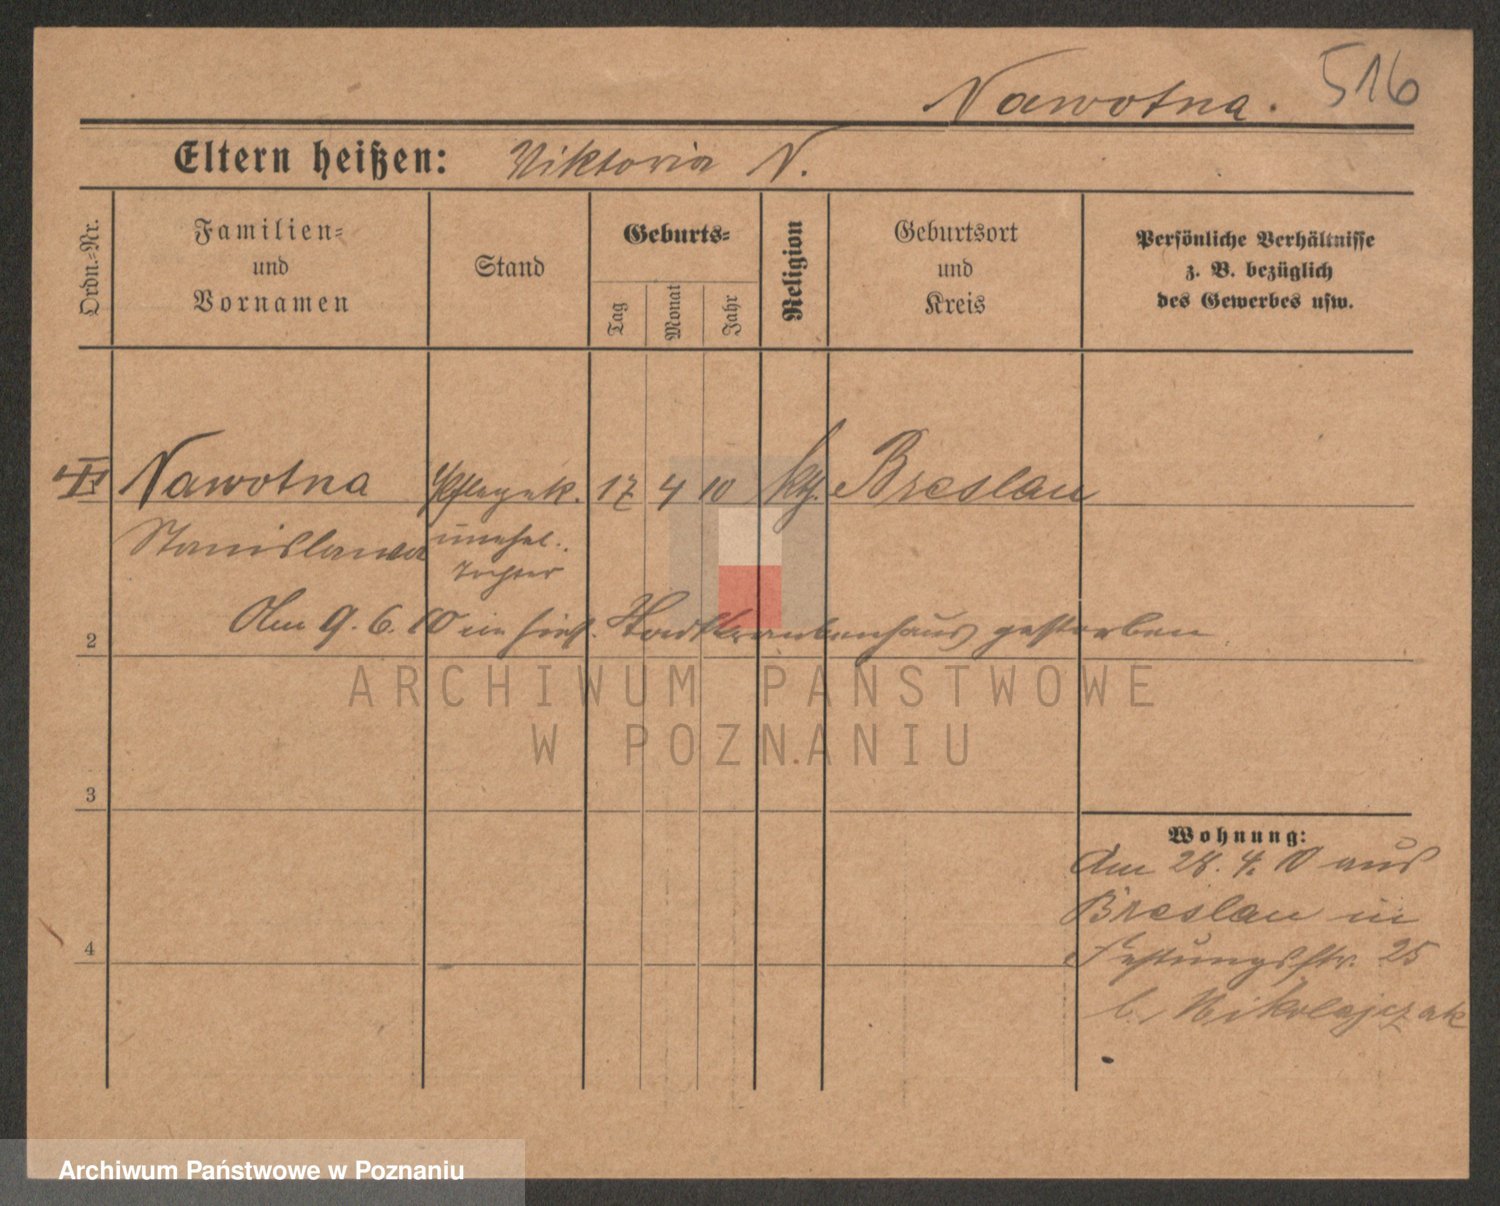 516
Nawotna.
Eltern heißen: Viktoria N.
Ordn.-Nr.
Familien-
und
Vornamen
Stand
Geburts-
Tag
Monat
Jahr
Religion
Geburtsort
und
Kreis
Persönliche Verhältnisse
z. B. bezüglich
des Gewerbes usw.
Nawotna Pflegek. 17 4 10 kth. Breslau
Stanislawa unehel.
Tochter
Am 9. 6. 10 im hies. Stadtkrankenhaus gestorben
2
ARCHIWUM PAŃSTWOWE
W POZNANIU
3
Wohnung:
Am 28. 4. 10 aus
Breslau in
4
Festungsstr. 25
b. Nikolajczak
Archiwum Państwowe w Poznaniu